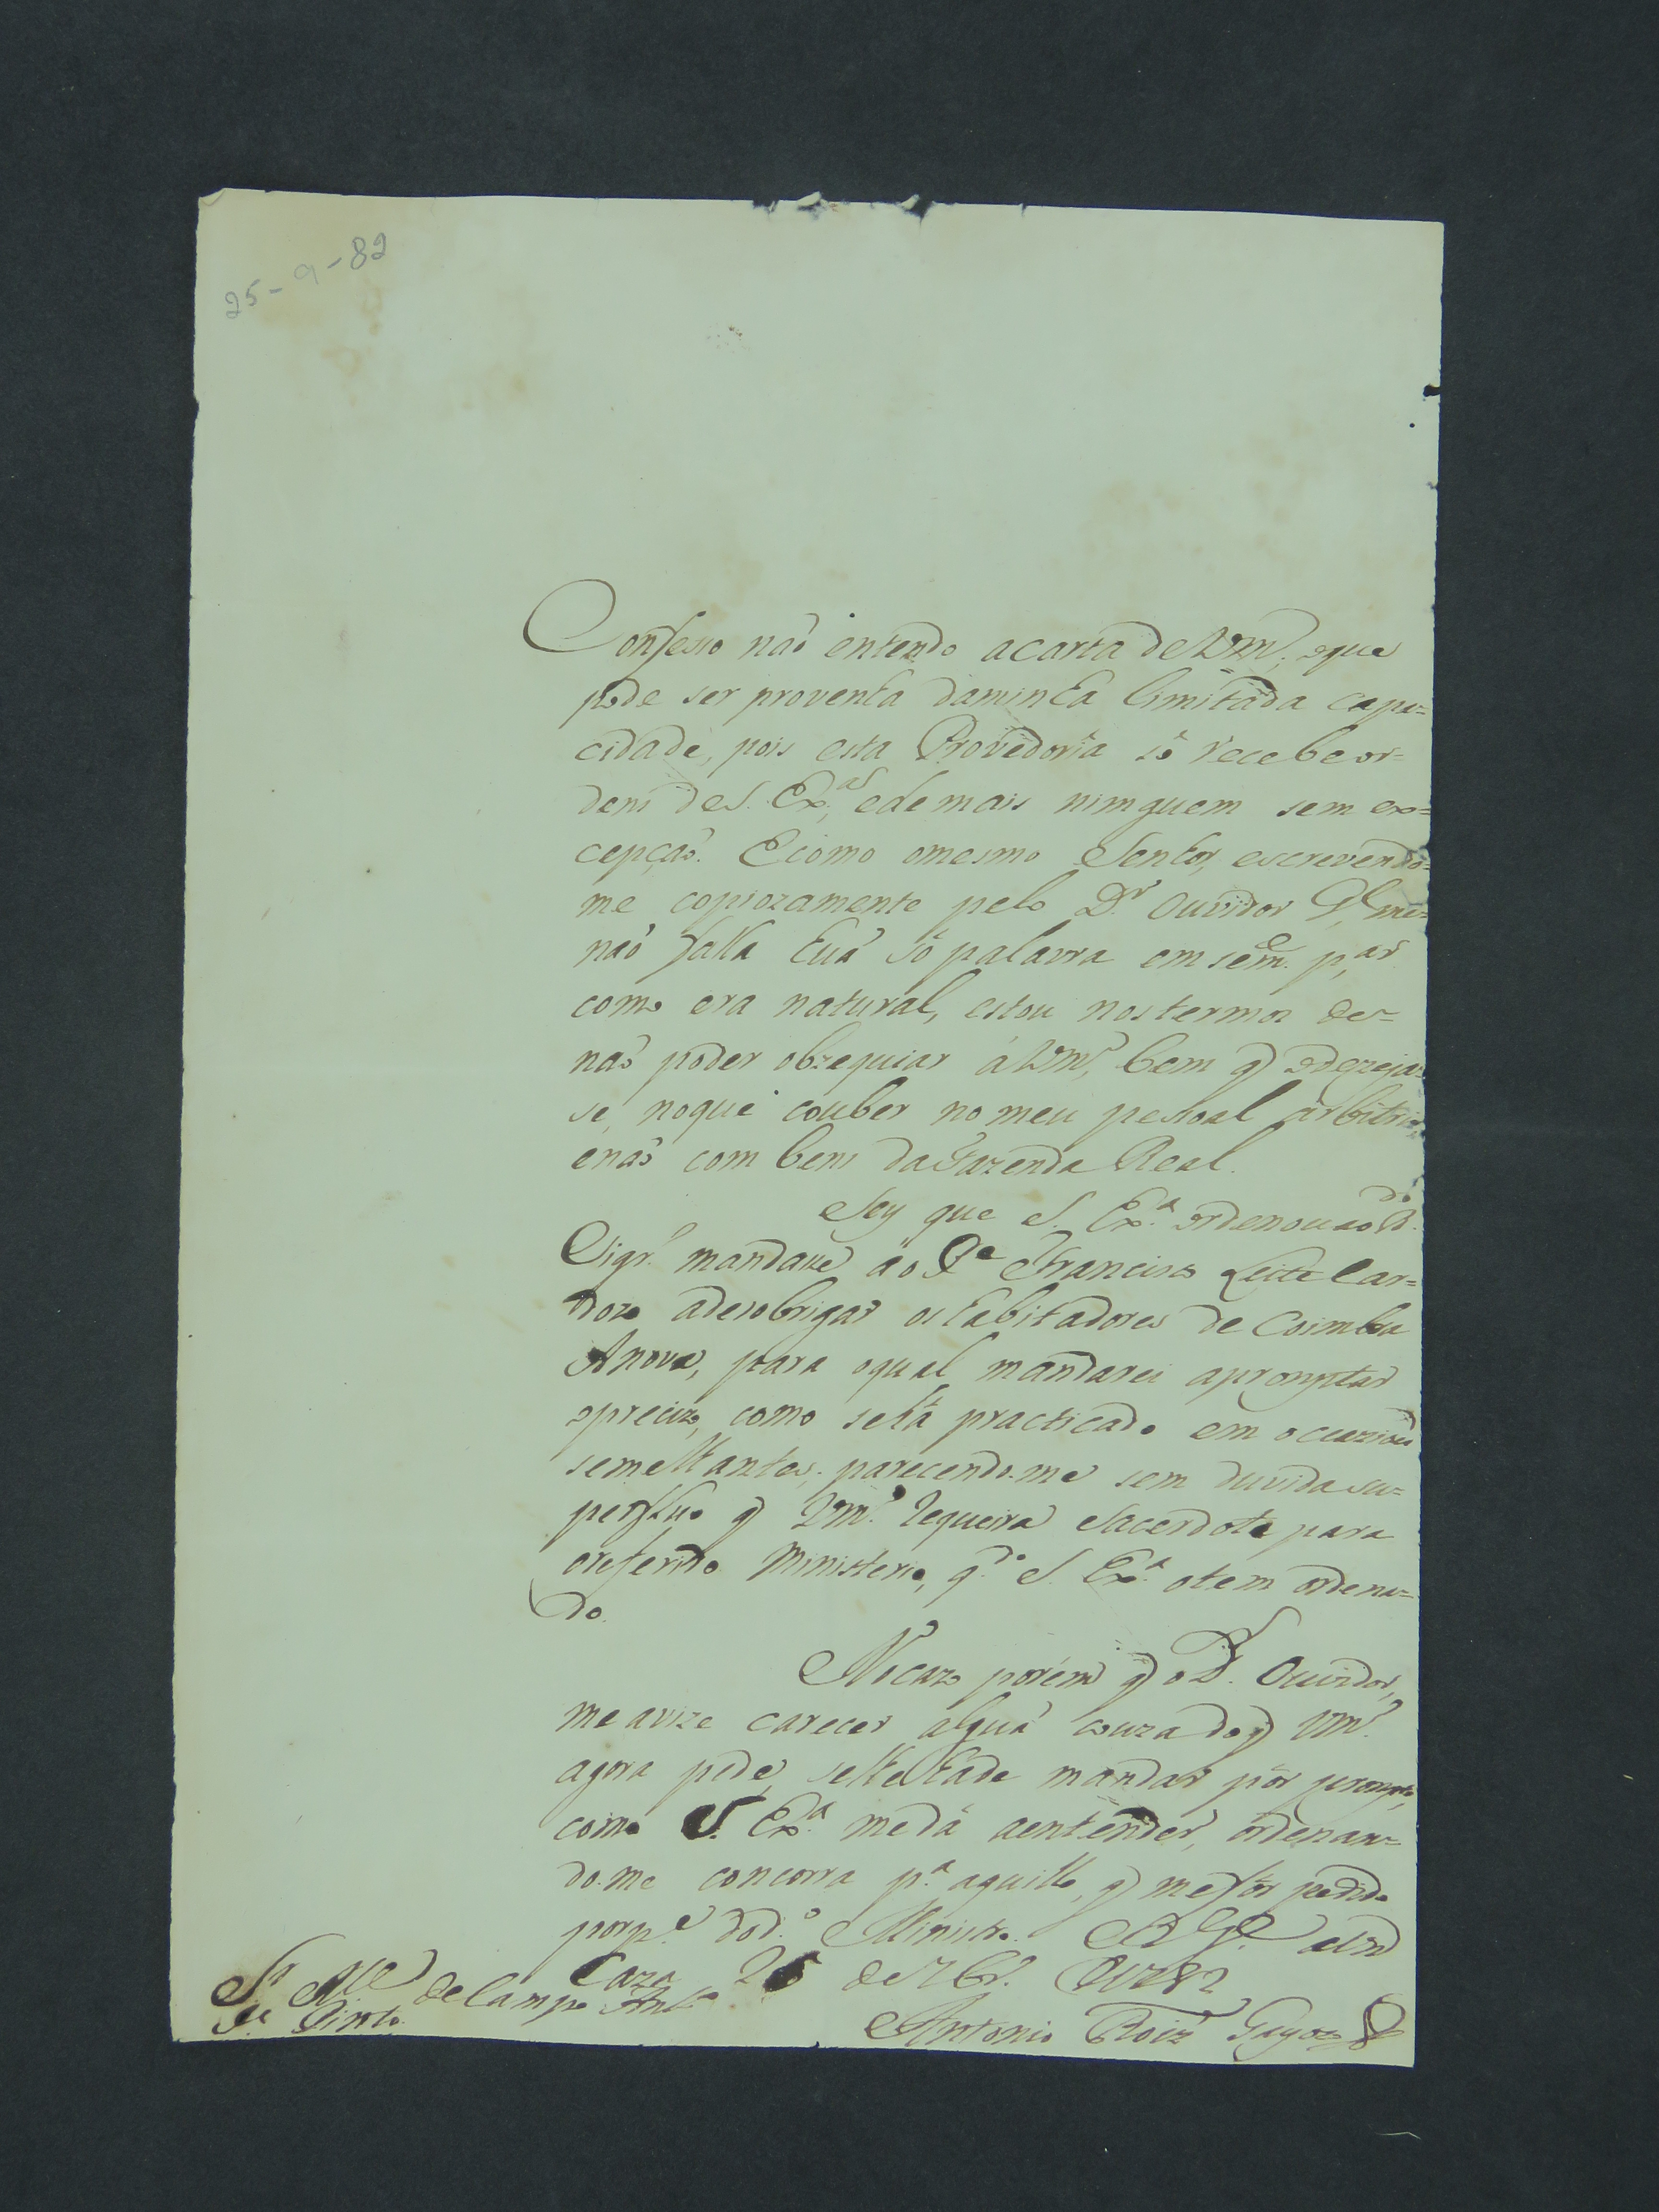 25-9-82
Confesso naõ entendo acarta de Vm.ce, oque
pode ser provenha daminha limitada capa=
cidade, pois esta Provedoria só recebe or=
dens de S. Ex.as, ede mais nimguem sem ex=
cepçaõ. Ecomo omesmo Senhor, escrevendo=
me copiozamente pelo D.r Ouvidor G.l, me=
naõ falla huã só palavra em sem.es p.ar
como era natural, estou nos termos de=
naõ poder obzequiar á Vm.ce, bem q̃ odezeja=
se, noque couber no meu pessoal arbitrio,
enaõ com bens daFazenda Real.
Sey que S. Ex.a ordenou ao R.do
Vigr.o mandase ao P.e Francisco Leite Car=
dozo adesobrigar os habitadores de Coimbra
Anova, para oqual mandarei apromptar
oprecizo, como seha practicado em occazioẽs
semelhantes; parecendo-me sem duvida su=
perfluo q̃ Vm.ce requeira Sacerdote para
oreferido Ministerio, q.do S. Ex.a otem ordena=
do.
Nocazo porém q̃ o D.r Ouvidor,
me avize carecer alguã couza do q̃ Vm.ce
agora pede, selhe hade mandar pôr prompto,
como S. Ex.a medá aentender, ordenan=
do-me concorra p.a aquillo, q̃ mefôr pedido
porp.e dod.o Ministro. D.s G.e a Vm.ce
Caza 25 de 7br.o de 1782
S.r M.e de Campo Ant.o
J.e Pinto.
Antonio Roiz Gayozo